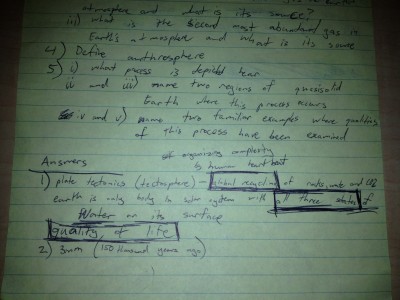 atmosphere and what is its source?
iii) what is the second most abundant gas in
Earth's atmosphere and what is its source
4) Define anthrosphere
5) i) what process is depicted hear
ii and iii) name two regions of quasisolid
Earth where this process occurs
iv and v) name two familiar examples where qualities
of this process have been examined
Answers
of organizing complexity
by human heart beat
1) plate tectonics (tectosphere) - global recycling of rocks, water and CO2
earth is only body in solar system with all three states of
Water on its surface
quality of life
2) 3mm (150 thousand years ago)